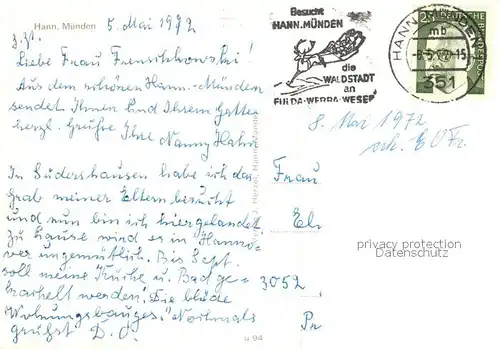 Hann. Münden
5. Mai 1972
z.Zt.
Liebe Frau
Aus dem schönen Hann.-Münden
sendet Ihnen und Ihrem Gatten
herzl. Grüße Ihre Nanny Hahn
In Südershausen habe ich das
Grab meiner Eltern besucht
und nun bin ich hier gelandet
Zu Hause wird es in "Hanno-
ver ungemütlich. Bis Sept.
soll meine Küche u. Bad ge-
kachelt werden! Die blöde
Wohnungsbauges." Nochmals
grüßt D. O.
u 94
Besucht
HANN.MÜNDEN
die
WALDSTADT
an
FULDA-WERRA-WESER
HANN. MÜNDEN
mb
-8.5.72-15
351
DEUTSCHE BUNDESPOST
8. Mai 1972
Frau
El
3052
privacy protection
Datenschutz